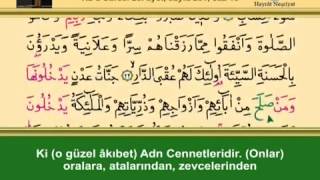 Hayrât Neşriyat
الصَّلٰوةَ وَاَنْفَقُوا مِمَّا رَزَقْنَاهُمْ سِرًّا وَعَلَانِيَةً وَيَدْرَؤُنَ
بِالْحَسَنَةِ السَّيِّئَةَ اُولٰئِكَ لَهُمْ عُقْبَى الدَّارِ ﴿٢٢﴾ جَنَّاتُ عَدْنٍ يَدْخُلُونَهَا
وَمَنْ صَلَحَ مِنْ اٰبَائِهِمْ وَاَزْوَاجِهِمْ وَذُرِّيَّاتِهِمْ وَالْمَلٰئِكَةُ يَدْخُلُونَ
Ki (o güzel âkıbet) Adn Cennetleridir. (Onlar)
oralara, atalarından, zevcelerinden